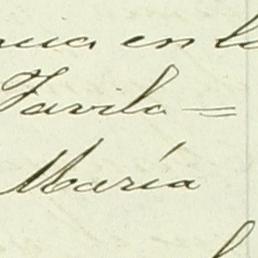 en la
Favila =
María